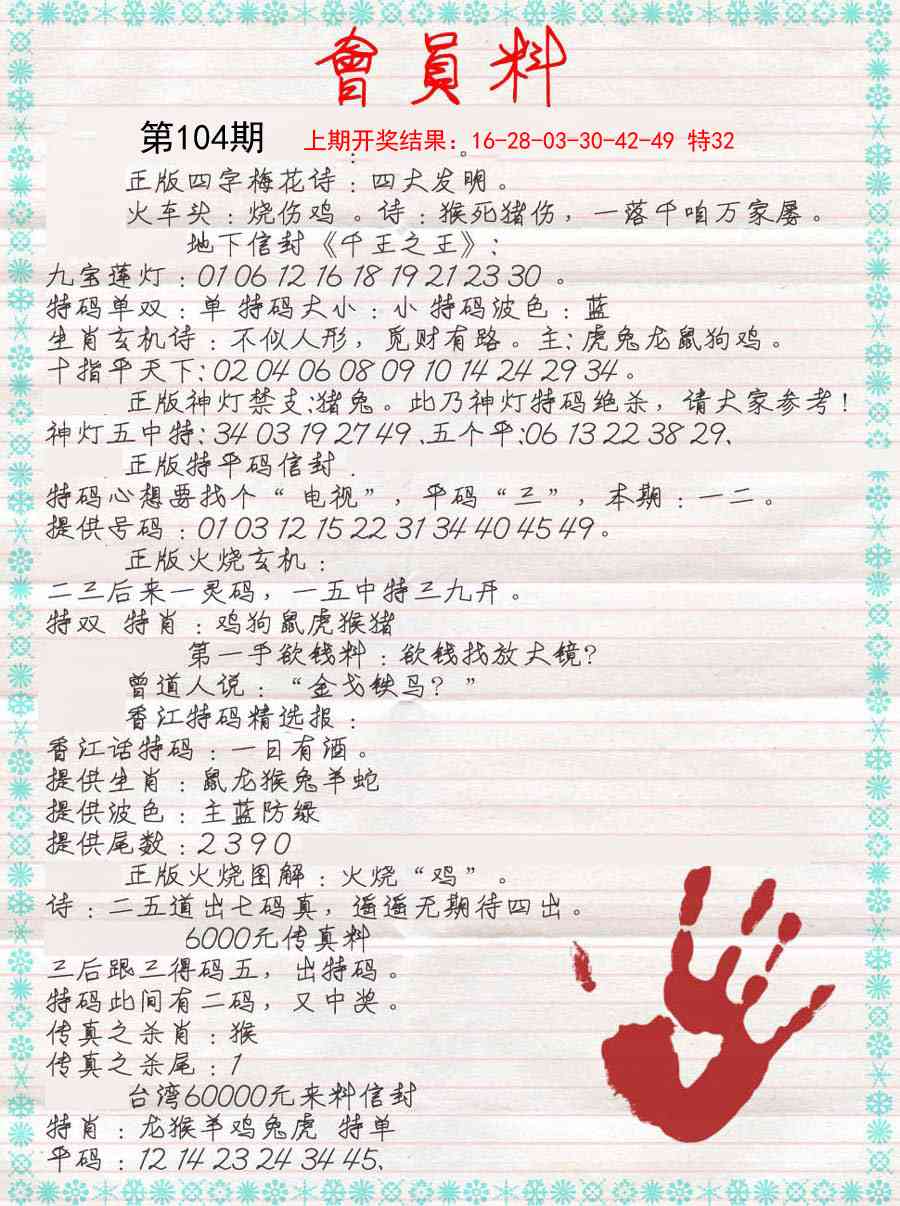 會員料
第104期 上期开奖结果：16-28-03-30-42-49 特32
：。
正版四字梅花诗：四大发明。
火车头：烧伤鸡。诗：猴死猪伤，一落千咱万家屡。
地下信封《千王之王》：
九宝莲灯：01 06 12 16 18 19 21 23 30 。
特码单双：单 特码大小：小 特码波色：蓝
生肖玄机诗：不似人形，觅财有路。主：虎兔龙鼠狗鸡。
十指平天下：02 04 06 08 09 10 14 24 29 34。
正版神灯禁支：猪兔。此乃神灯特码绝杀，请大家参考！
神灯五中特：34 03 19 27 49、五个平：06 13 22 38 29、
正版特平码信封．
特码心想要找个“电视”，平码“三”，本期：一二。
提供号码：01 03 12 15 22 31 34 40 45 49。
正版火烧玄机：
二三后来一灵码，一五中特三九开。
特双 特肖：鸡狗鼠虎猴猪
第一手欲钱料：欲钱找放大镜？
曾道人说：“金戈铁马？”
香江特码精选报：
香江话特码：一日有酒。
提供生肖：鼠龙猴兔羊蛇
提供波色：主蓝防绿
提供尾数：2 3 9 0
正版火烧图解：火烧“鸡”。
诗：二五道出七码真，遥遥无期待四出。
6000元传真料
三后跟三得码五，出特码。
特码此间有二码，又中奖。
传真之杀肖：猴
传真之杀尾：1
台湾60000元来料信封
特肖：龙猴羊鸡兔虎 特单
平码：12 14 23 24 34 45、